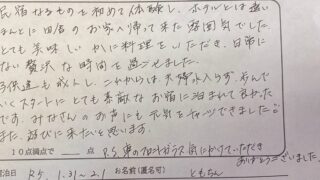 民宿なるものを初めて体験し、ホテルとは違い
ほんとに田舎のお家へ帰って来た雰囲気でした。
とても美味しいかに料理をいただき、日常に
ない贅沢な時間を過ごせました。
子供達も成人し、これからは夫婦水入らず、歩んで
いくスタートにとても素敵なお宿に泊まれて良かった
です。みなさんのお声にも元気をもらってきました
また、遊びに来たいと思います。
10点満点で 点 P.S. 車のフロントガラス 気にかけていただき
ありがとうございました。
宿泊日 R5. 1.31~2.1 お名前(匿名可) ともちん